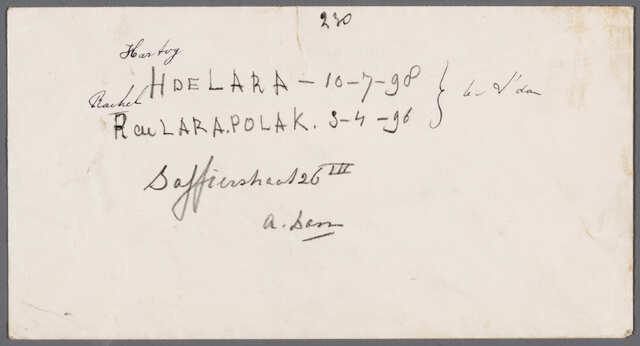 230
Hartog
H DE LARA - 10-7-98
Rachel
R DE LARA.POLAK. 3-4-96
te A'dam
Saffierstraat 26 III
A. Dam